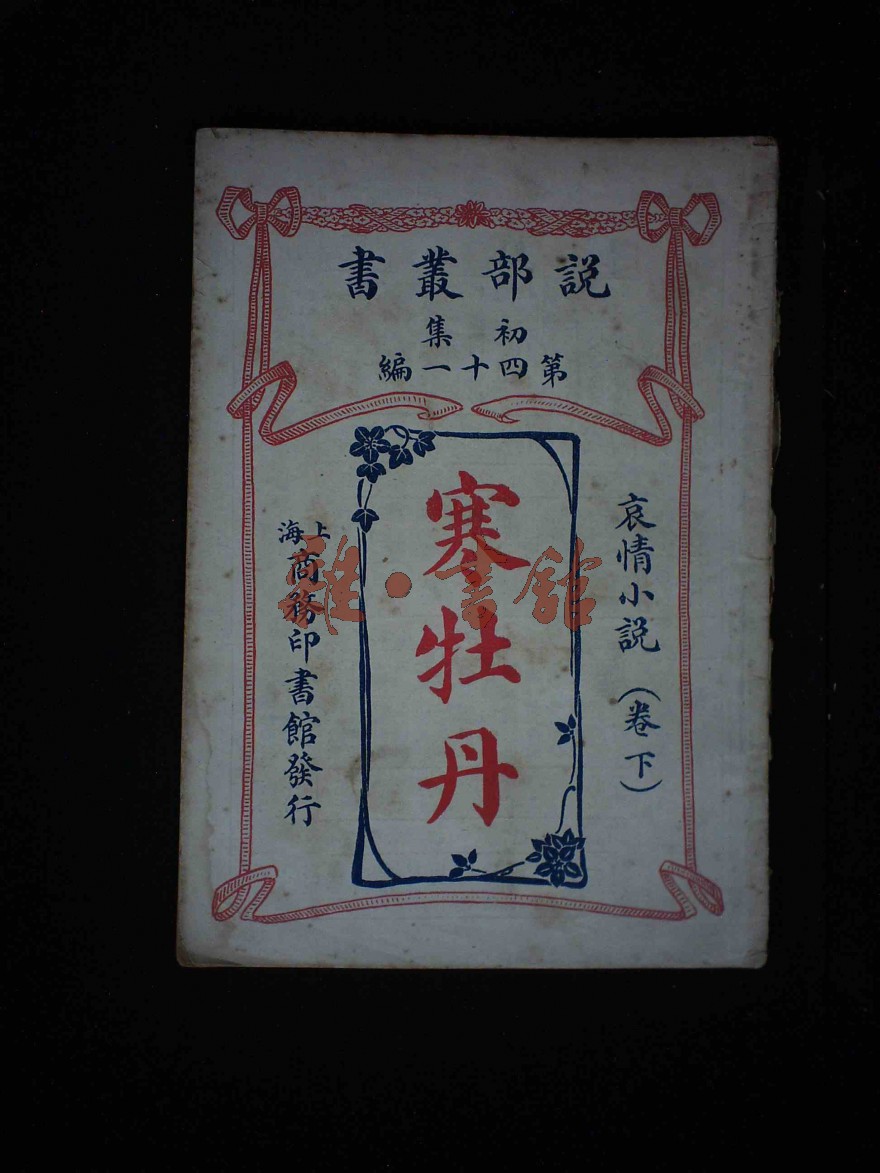 説部叢書
初集
第四十一編
哀情小説（卷下）
寒牡丹
上海商務印書館發行
雜·書館